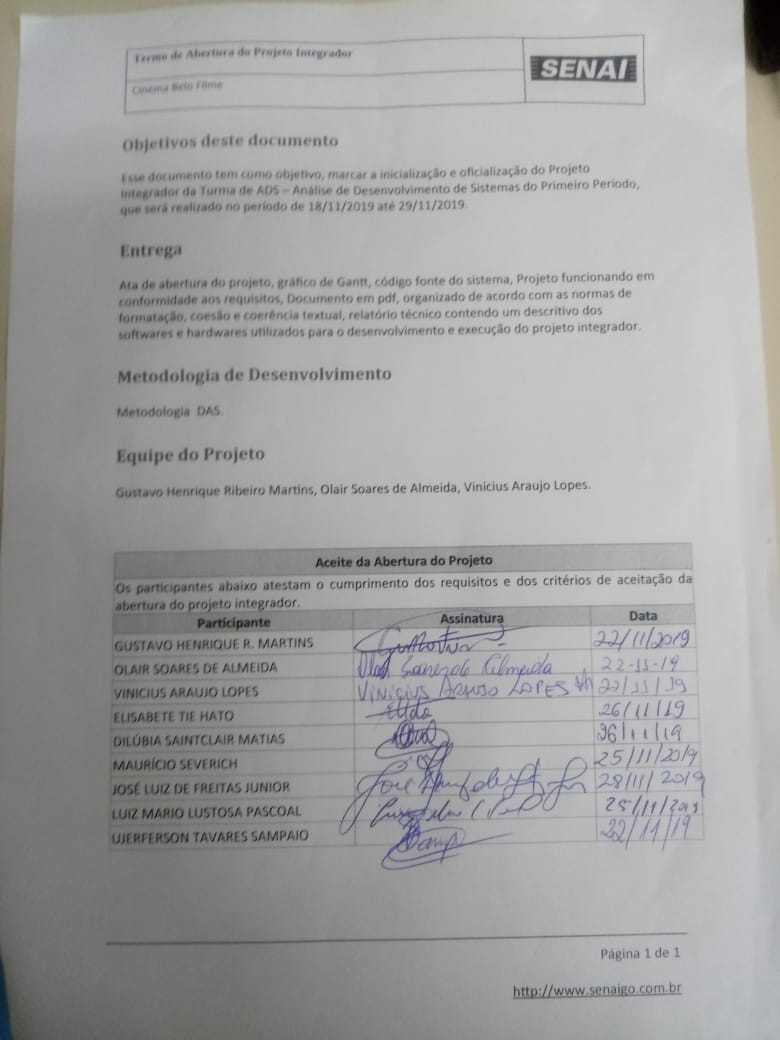 Termo de Abertura do Projeto Integrador
SENAI
Cinema Belo Filme
Objetivos deste documento
Esse documento tem como objetivo, marcar a inicialização e oficialização do Projeto
Integrador da Turma de ADS – Análise de Desenvolvimento de Sistemas do Primeiro Período,
que será realizado no período de 18/11/2019 até 29/11/2019.
Entrega
Ata de abertura do projeto, gráfico de Gantt, código fonte do sistema, Projeto funcionando em
conformidade aos requisitos, Documento em pdf, organizado de acordo com as normas de
formatação, coesão e coerência textual, relatório técnico contendo um descritivo dos
softwares e hardwares utilizados para o desenvolvimento e execução do projeto integrador.
Metodologia de Desenvolvimento
Metodologia DAS.
Equipe do Projeto
Gustavo Henrique Ribeiro Martins, Olair Soares de Almeida, Vinicius Araujo Lopes.
Aceite da Abertura do Projeto
Os participantes abaixo atestam o cumprimento dos requisitos e dos critérios de aceitação da
abertura do projeto integrador.
Participante Assinatura Data
GUSTAVO HENRIQUE R. MARTINS 22/11/2019
OLAIR SOARES DE ALMEIDA Soares de Almeida 22-11-19
VINICIUS ARAUJO LOPES VINICIUS ARAUJO LOPES 22/11/19
ELISABETE TIE HATO 26/11/19
DILÚBIA SAINTCLAIR MATIAS 26/11/19
MAURÍCIO SEVERICH 25/11/2019
JOSÉ LUIZ DE FREITAS JUNIOR José 28/11/2019
LUIZ MARIO LUSTOSA PASCOAL 25/11/2019
UJERFERSON TAVARES SAMPAIO 22/11/19
Página 1 de 1
http://www.senaigo.com.br